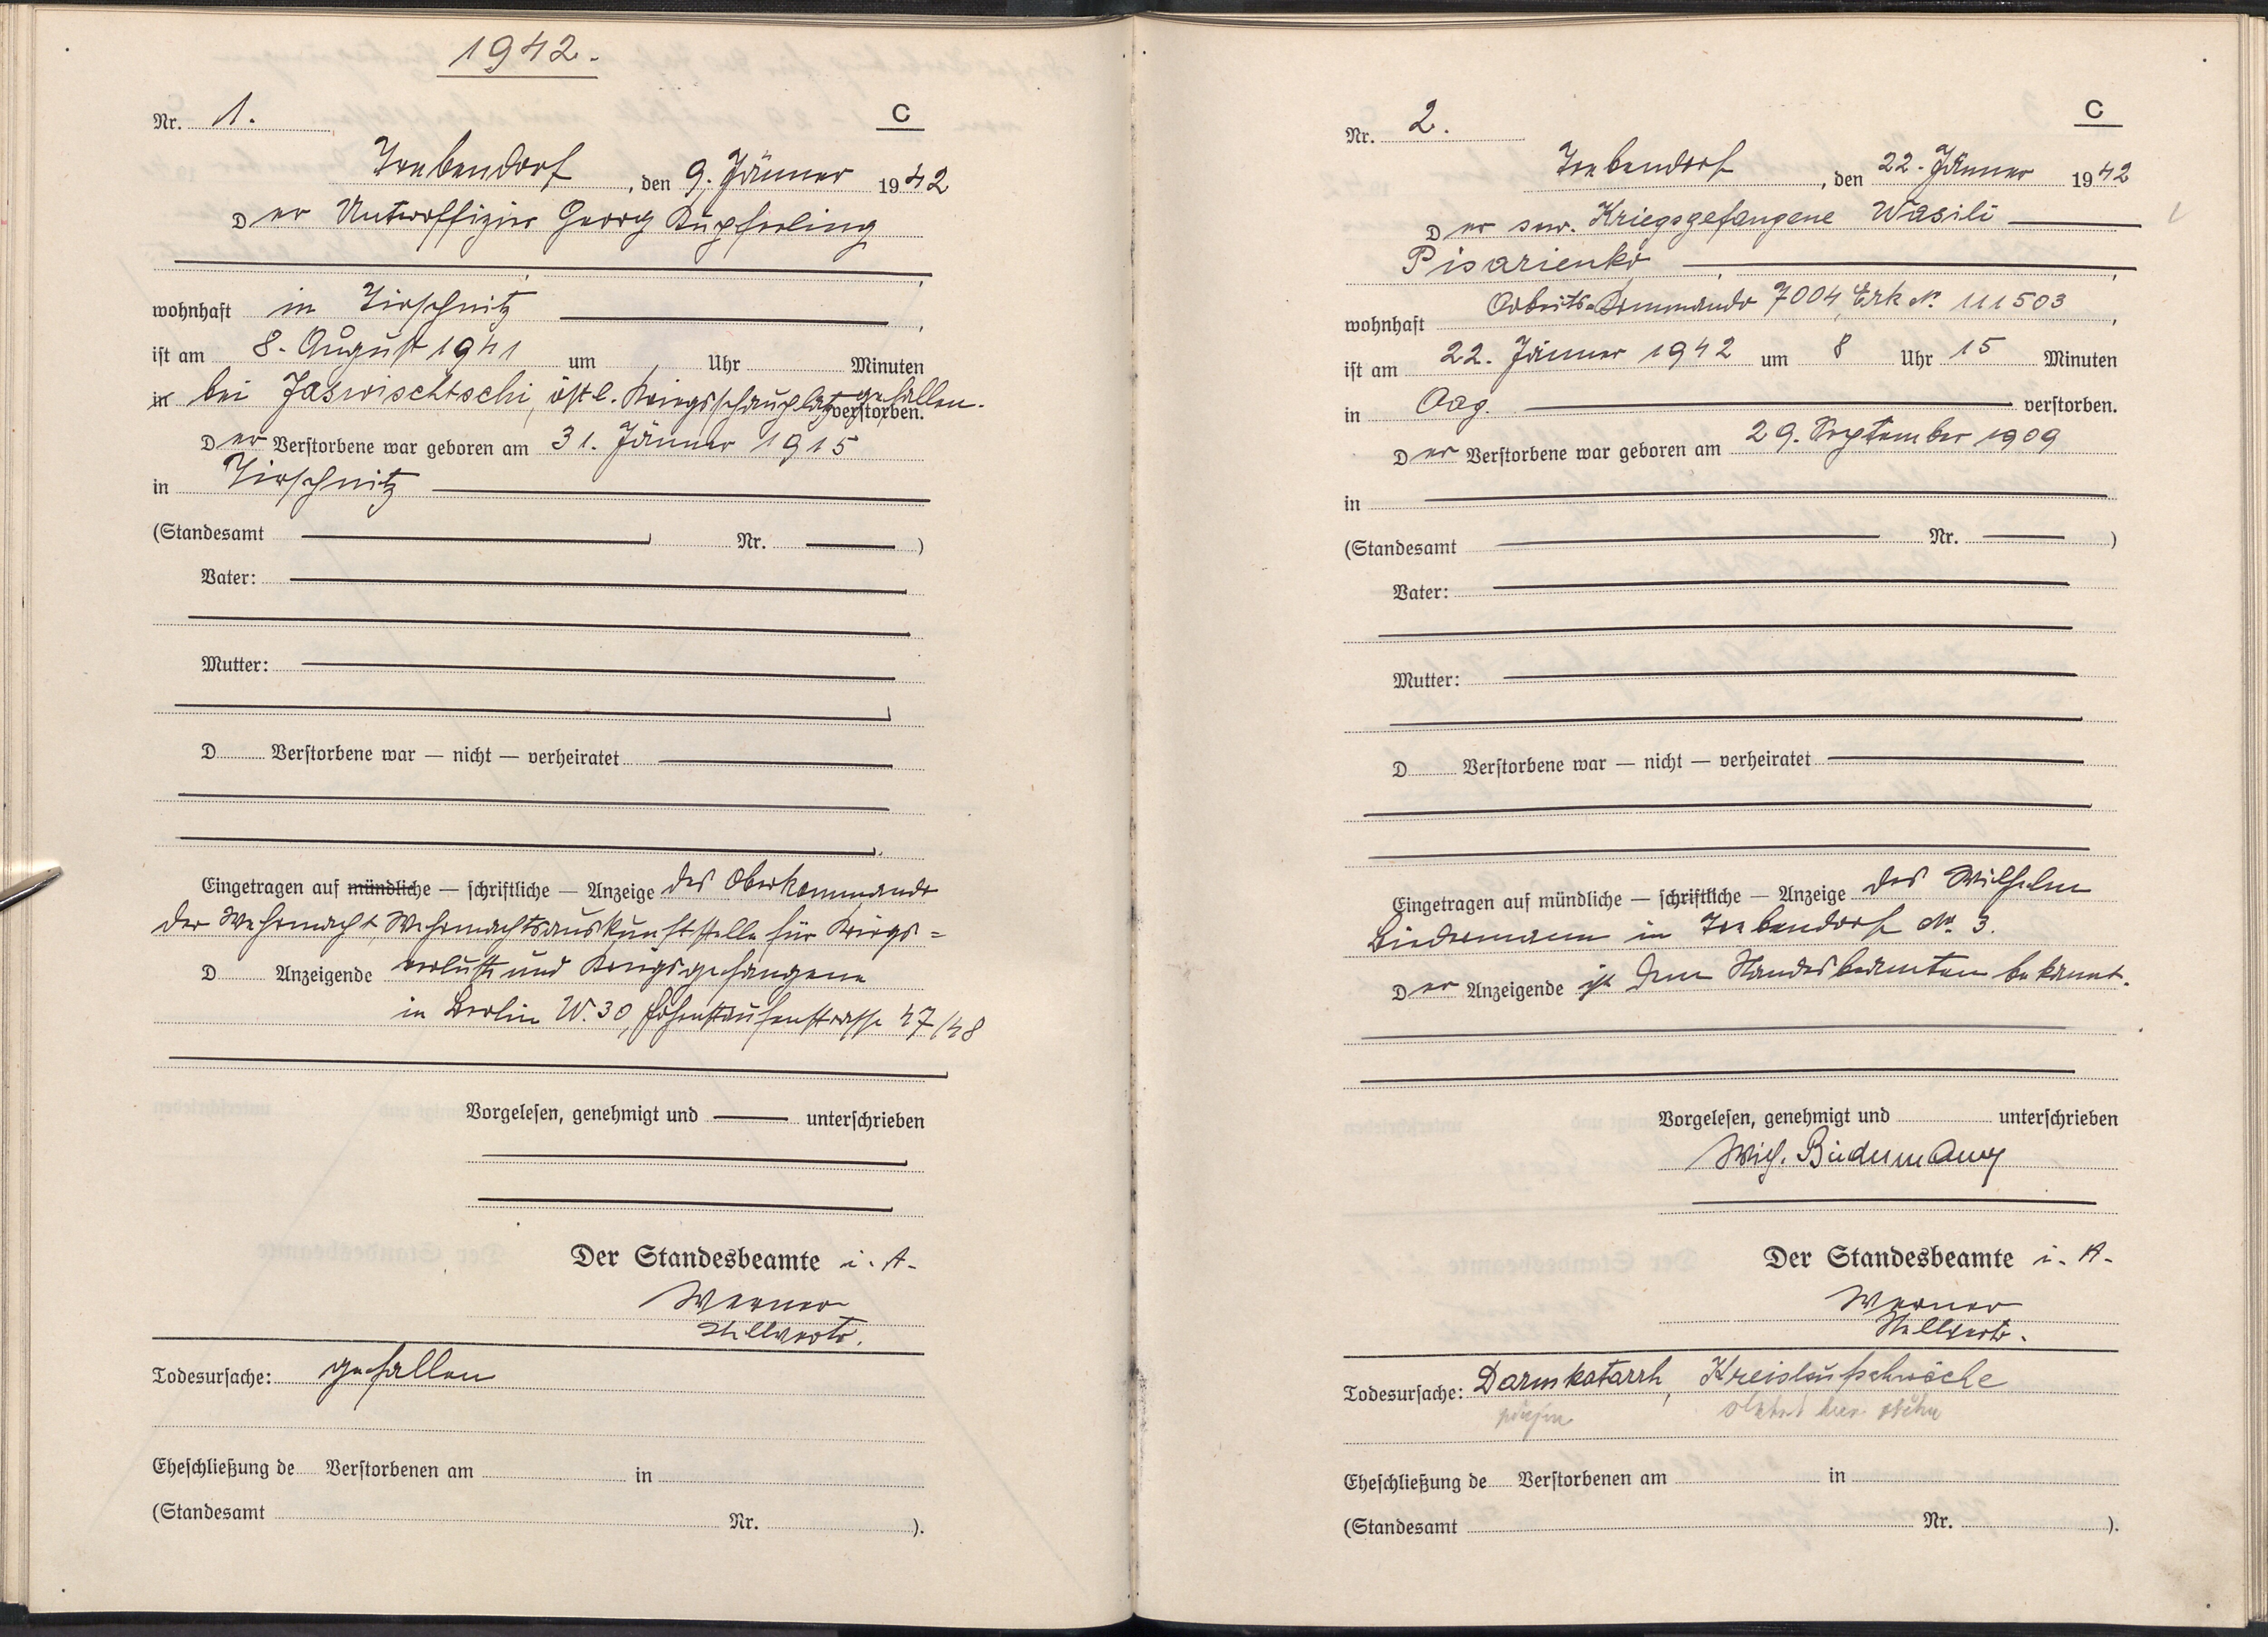 1942.
Nr. 1.
C
Trebendorf, den 9. Jänner 1942
Der Unteroffizier Georg Kupferling
wohnhaft in Tirschnitz
ist am 8. August 1941 um Uhr Minuten
in bei Jaswischtschi, östl. Kriegsschauplatz gefallen.
verstorben.
Der Verstorbene war geboren am 31. Jänner 1915
in Tirschnitz
(Standesamt Nr. )
Vater:
Mutter:
D Verstorbene war — nicht — verheiratet
Eingetragen auf mündliche — schriftliche — Anzeige des Oberkommando
der Wehrmacht, Wehrmachtsauskunftstelle für Kriegs=
D Anzeigende verluste und Kriegsgefangene
in Berlin W. 30, Hohenstaufenstrasse 47/48
Vorgelesen, genehmigt und unterschrieben
Der Standesbeamte i. A.
Werner
Stellvertr.
Todesursache: gefallen
Eheschließung de Verstorbenen am in
(Standesamt Nr. ).
Nr. 2.
C
Trebendorf, den 22. Jänner 1942
Der sow. Kriegsgefangene Wasili
Pisarienko
wohnhaft Arbeits-Kommando 7004, Erk. N. 111503
ist am 22. Jänner 1942 um 8 Uhr 15 Minuten
in Aag. verstorben.
Der Verstorbene war geboren am 29. September 1909
in
(Standesamt Nr. )
Vater:
Mutter:
D Verstorbene war — nicht — verheiratet
Eingetragen auf mündliche — schriftliche — Anzeige des Wilhelm
Biedermann in Trebendorf No. 3.
Der Anzeigende ist dem Standesbeamten bekannt.
Vorgelesen, genehmigt und unterschrieben
Wilh. Biedermann
Der Standesbeamte i. A.
Werner
Stellvertr.
Todesursache: Darmkatarrh, Kreislaufschwäche
Eheschließung de Verstorbenen am in
(Standesamt Nr. ).